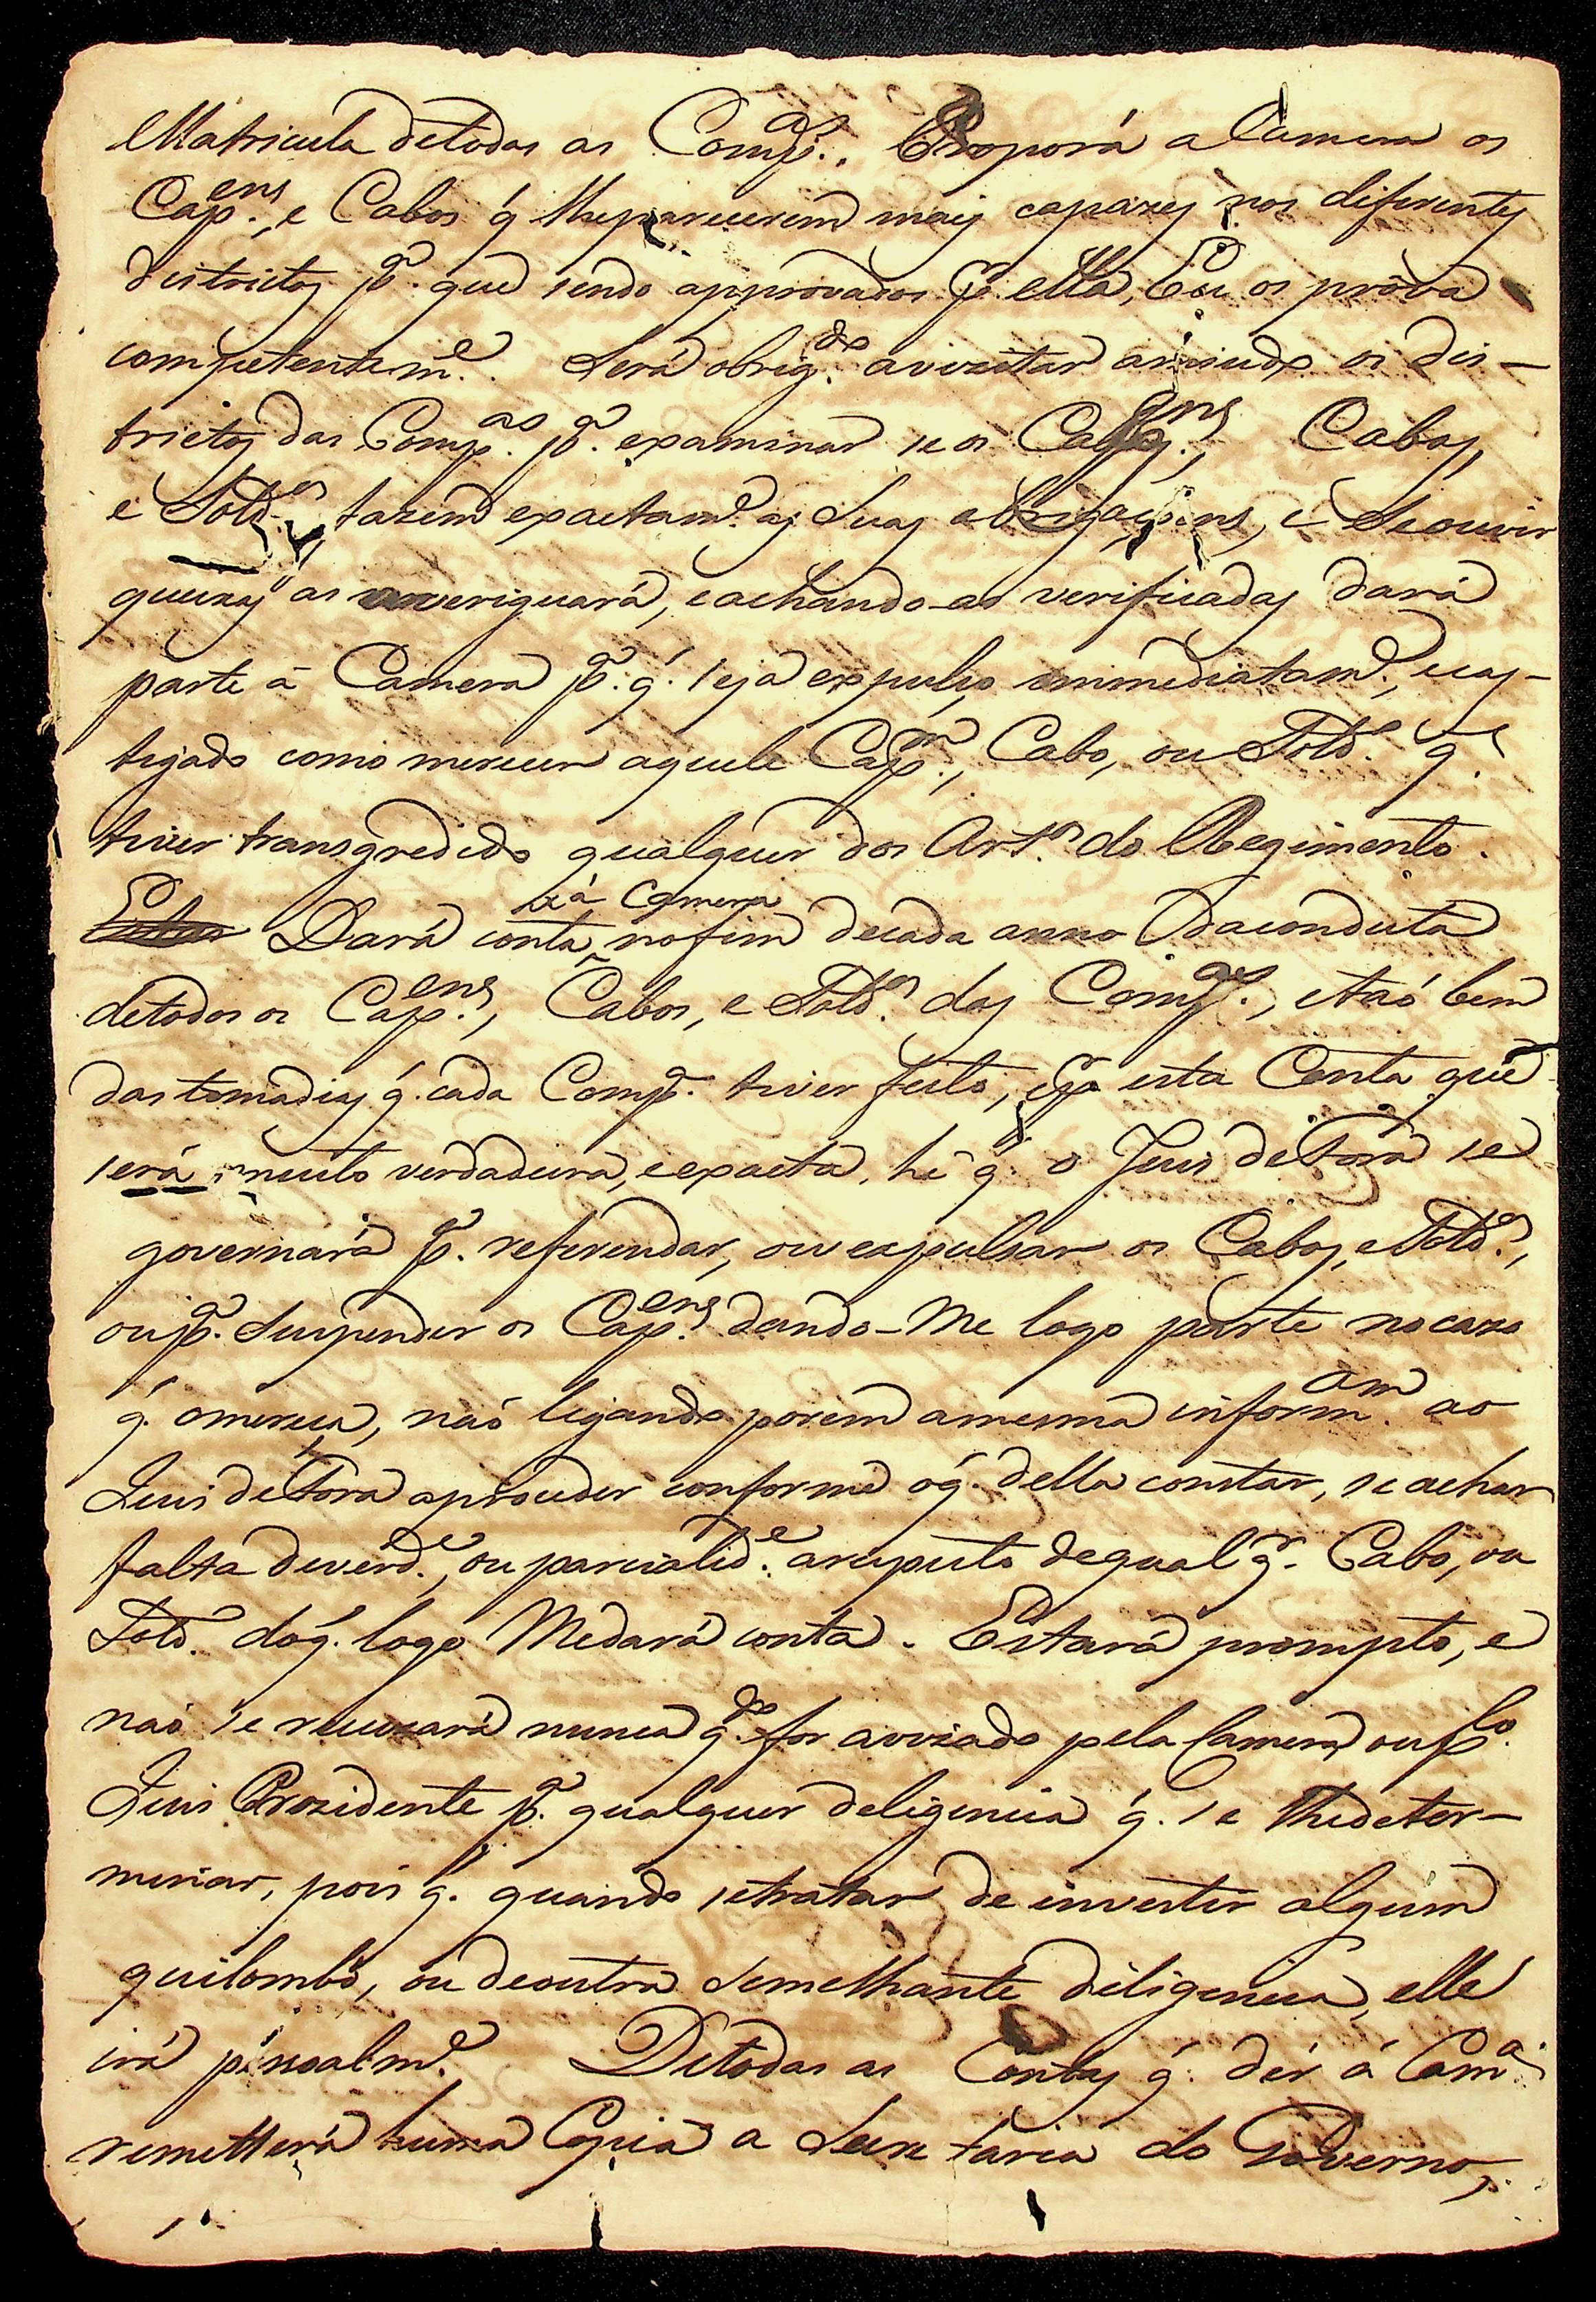 Matricula detodas as Comp.as. Proporá a Camera os
Cap.ens, e Cabos q̃ lhe parecerem mais capazes nos diferentes
districtos p.a que sendo approvados p.r ella, Eu os próva
competentem.e. Será obrig.do avizitar amiudo os dis-
trictos das Comp.as p.a examinar se os Cap.ens, Cabos,
e Sold.os fazem exactam.e as Suas obrigaçoens, e Seouvir
queixas as averiguará, eachando-as verificadas dará
parte á Camera p.a q̃. seja expulso immediatam.e, ecas-
tigado como merecer aquele Cap.m, Cabo, ou Sold.o q̃.
tiver transgredido qualquer dos Art.os do Regimento.
Dará conta á Camera nofim decada anno daconduta
detodos os Cap.ens, Cabos, e Sold.os das Comp.as, etaó bem
das tomadias q̃. cada Comp.a tiver feito, e p.r esta Conta que
será muito verdadeira, eexacta, hé q̃. o Juis defóra se
governará p.a referendar, ou expulsar os Cabos, eSold.os,
ou p.a Suspender os Cap.ens dando-Me logo parte nocazo
q̃. omereça, naó ligando porem amesma inform.am ao
Juis defóra aproceder conforme oq̃. della constar, se achar
falta deverd.e, ou parcialid.e arespeito dequalq.r Cabo, ou
Sold.o doq̃. logo Medará conta. Estará prompto, e
naó se recuzará nunca q.do for avizado pela Camera, ou p.lo
Juis Prezidente p.a qualquer deligencia q̃. se lhedeter-
minar, pois q̃. quando setratar de investir algum
quilombo, ou deoutra Semelhante diligencia, elle
irá pessoalm.e. Detodas as Contas q̃. dér á Cam.a
remetterá huma Copia a Secretaria do Governo,